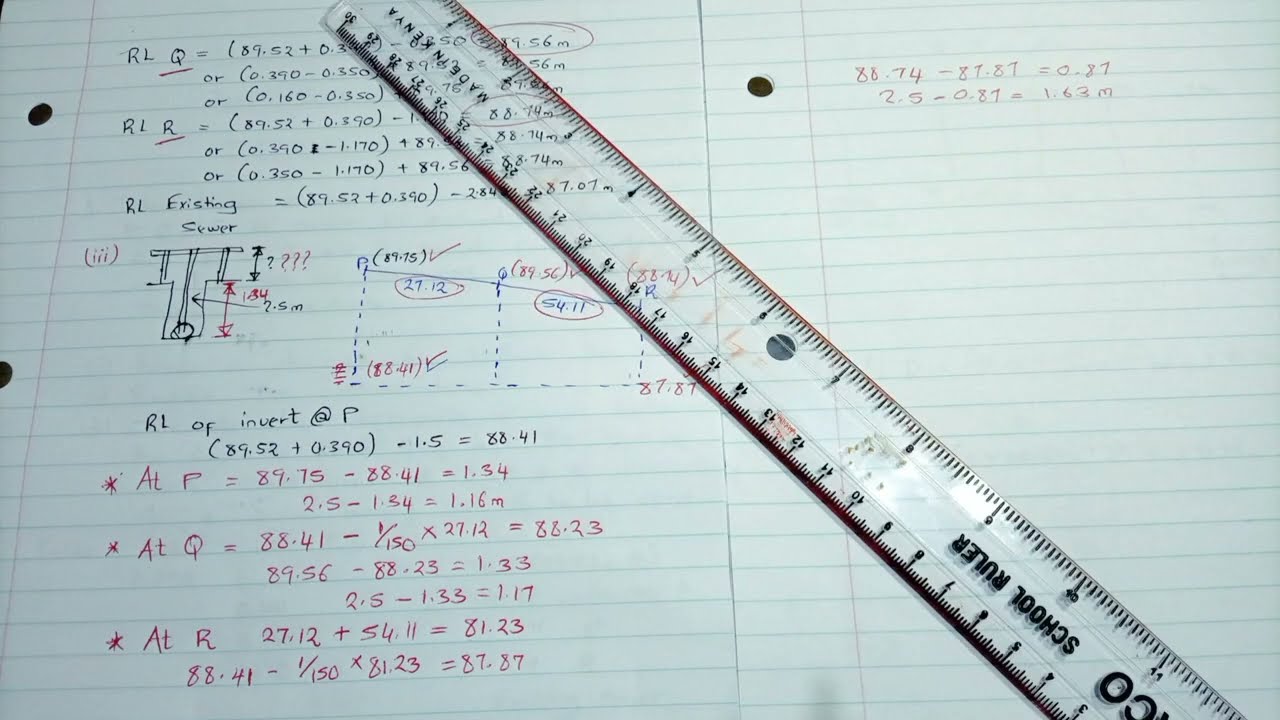 RL Q = (89.52 + 0.390) - 0.350 = 89.56 m
or (0.390 - 0.350) + 89.52 = 89.56m
or (0.160 - 0.350)
RL R = (89.52 + 0.390) - 1.170 = 88.74m
or (0.390 - 1.170) + 89. = 88.74m
or (0.350 - 1.170) + 89.56 = 88.74m
RL Existing Sewer = (89.52 + 0.390) - 2.84 87.07 m
(iii)
? ???
1.34
2.5m
P (89.75) ✓
27.12
Q (89.56) ✓
54.11
(88.74) ✓
R
(88.41) ✓
87.87
RL of invert @ P
(89.52 + 0.390) - 1.5 = 88.41
* At P = 89.75 - 88.41 = 1.34
2.5 - 1.34 = 1.16m
* At Q = 88.41 - 1/150 × 27.12 = 88.23
89.56 - 88.23 = 1.33
2.5 - 1.33 = 1.17
* At R 27.12 + 54.11 = 81.23
88.41 - 1/150 × 81.23 = 87.87
88.74 - 87.87 = 0.87
2.5 - 0.87 = 1.63 m
MADE IN KENYA
SCHOOL RULER